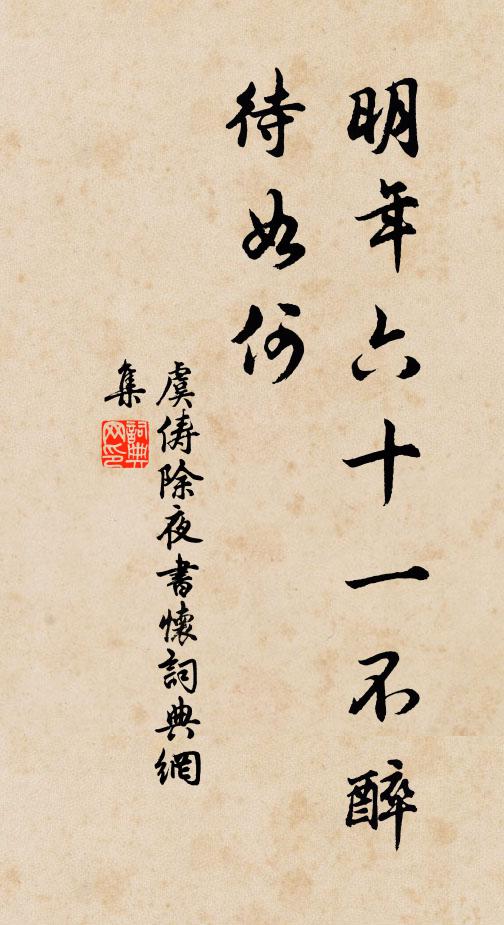 明年六十一不醉
待如何
虞俦除夜書懷詞典網
集
詞典
网印